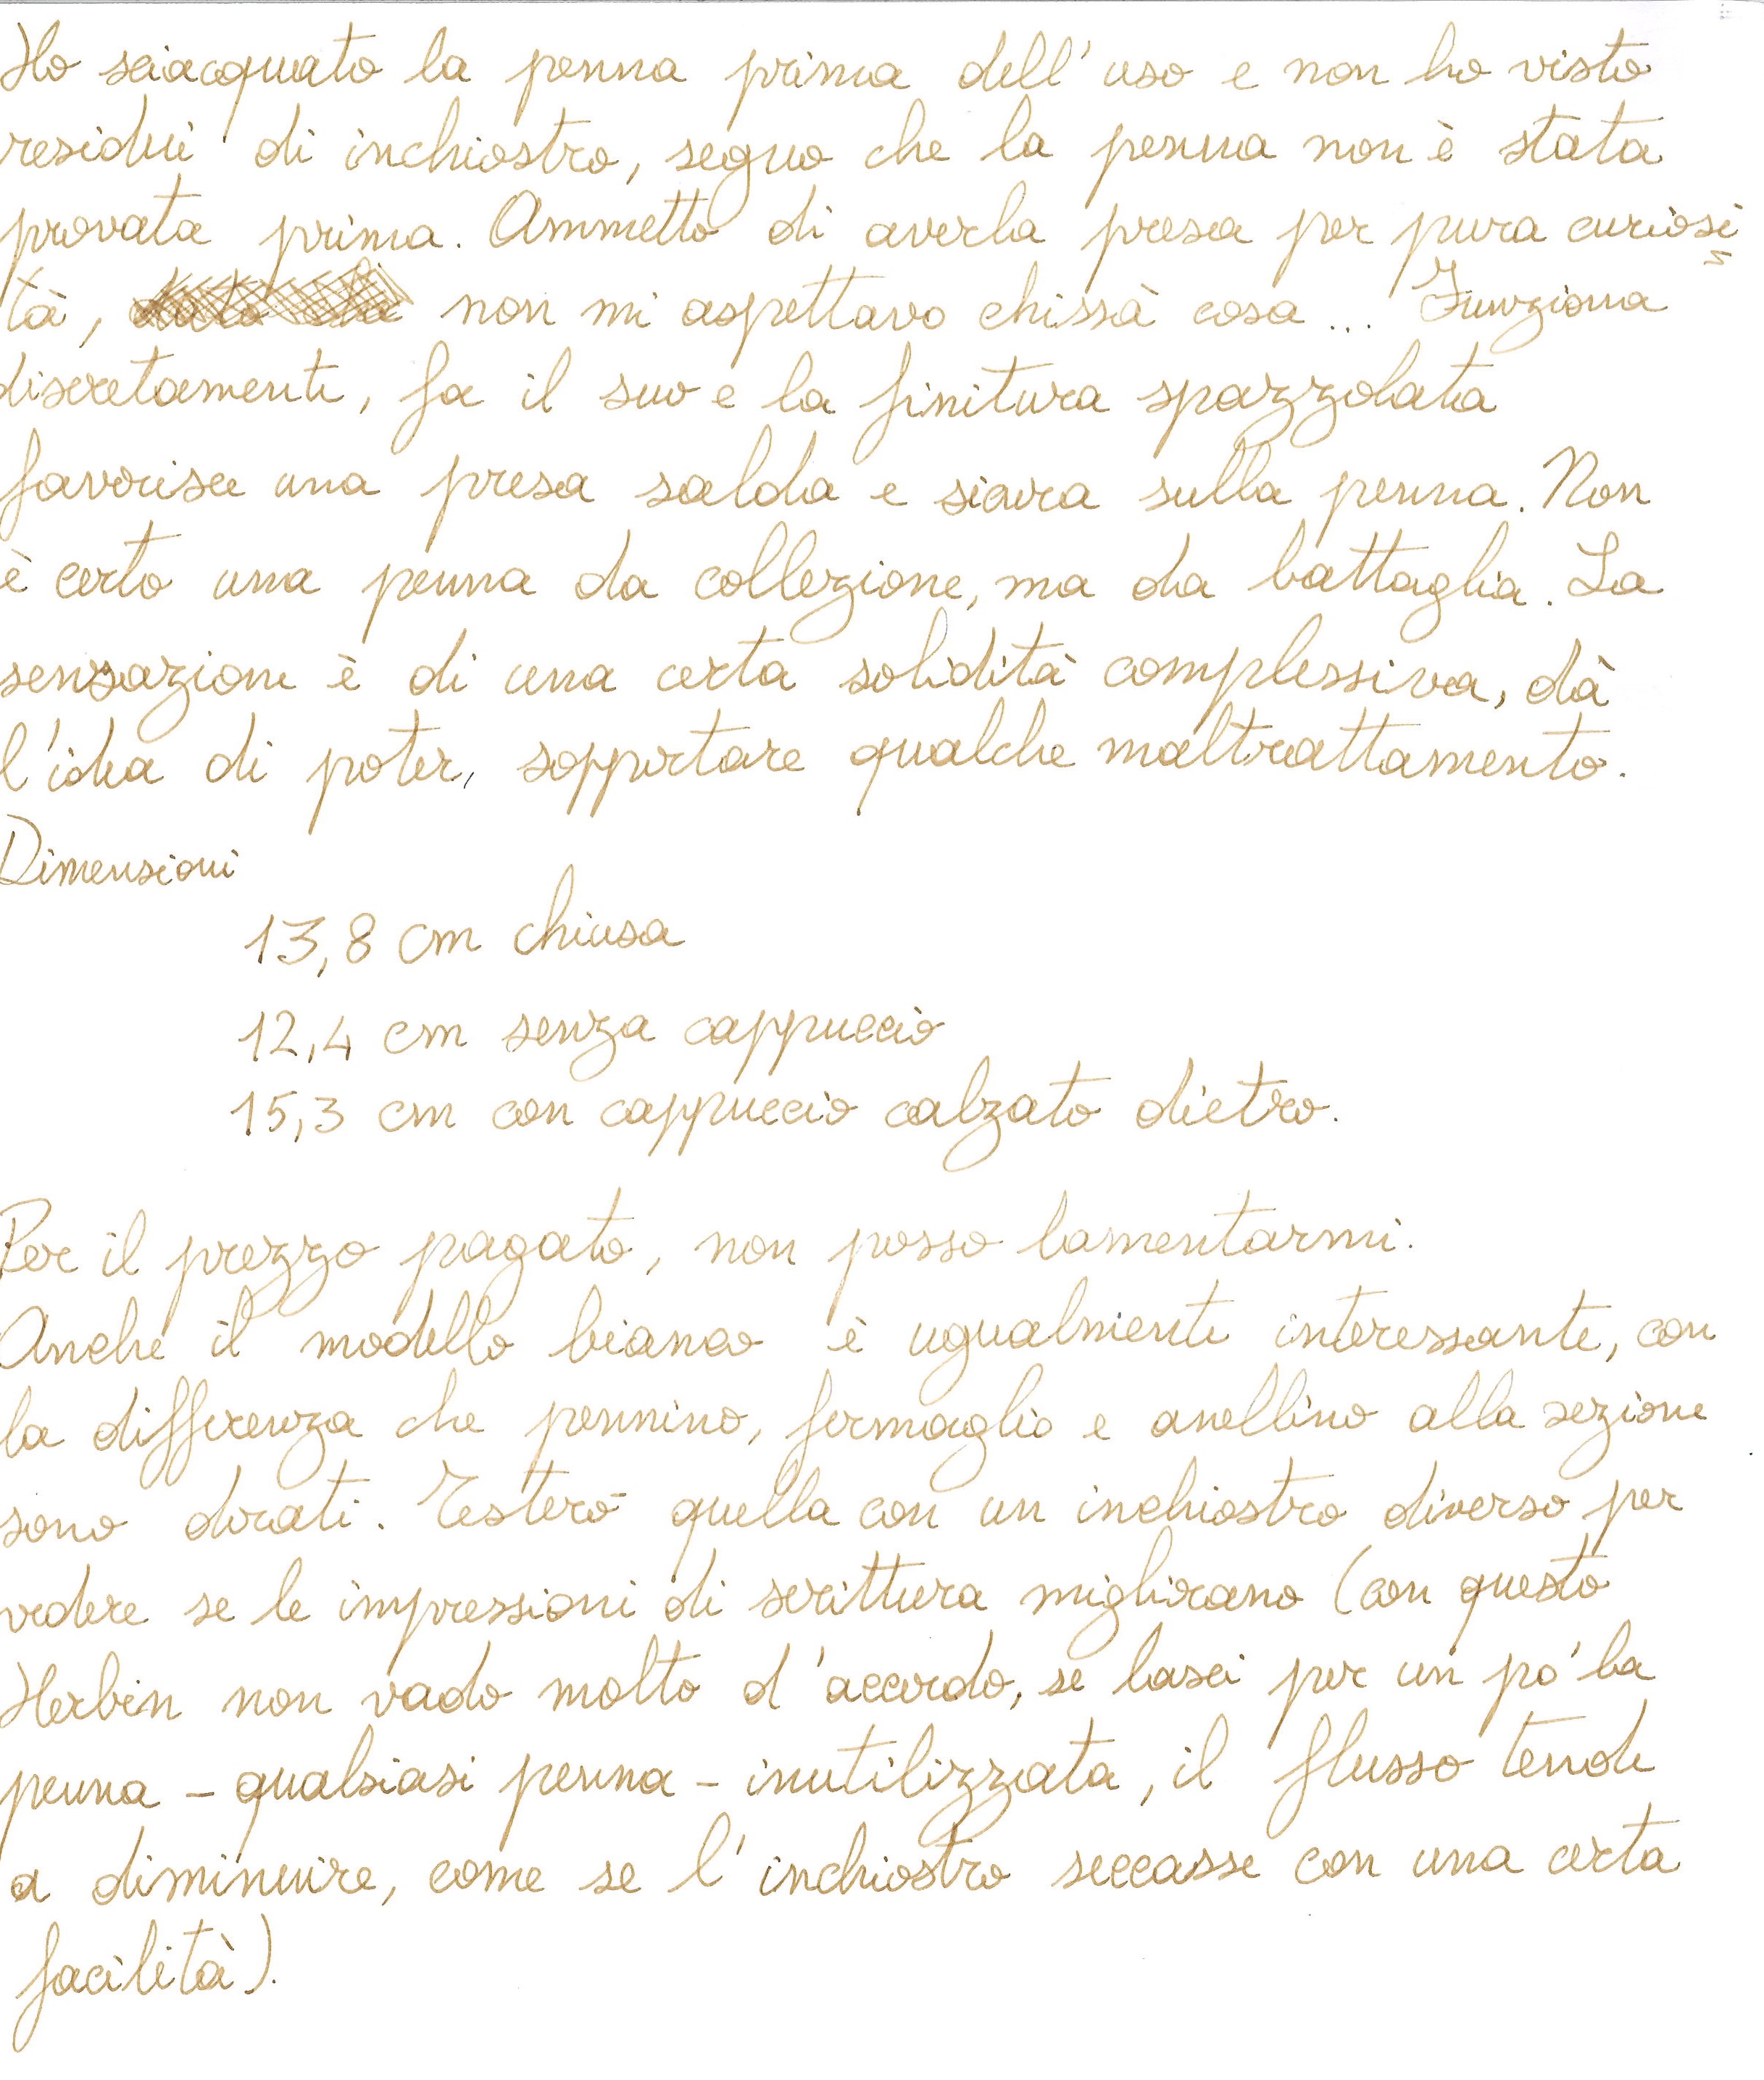 Ho sciacquato la penna prima dell'uso e non ho visto
residui di inchiostro, segno che la penna non è stata
provata prima. Ammetto di averla presa per pura curiosi
tà, non mi aspettavo chissà cosa... Funziona
discretamente, fa il suo e la finitura spazzolata
favorisce una presa salda e sicura sulla penna. Non
è certo una penna da collezione, ma da battaglia. La
sensazione è di una certa solidità complessiva, dà
l'idea di poter, sopportare qualche maltrattamento.
Dimensioni
13,8 cm chiusa
12,4 cm senza cappuccio
15,3 cm con cappuccio calzato dietro.
Per il prezzo pagato, non posso lamentarmi.
Anche il modello bianco è ugualmente interessante, con
la differenza che pennino, fermaglio e anellino alla sezione
sono dorati. Testerò quella con un inchiostro diverso per
vedere se le impressioni di scrittura migliorano (con questo
Herbin non vado molto d'accordo, se lasci per un po' la
penna - qualsiasi penna - inutilizzata, il flusso tende
a diminuire, come se l'inchiostro seccasse con una certa
facilità).